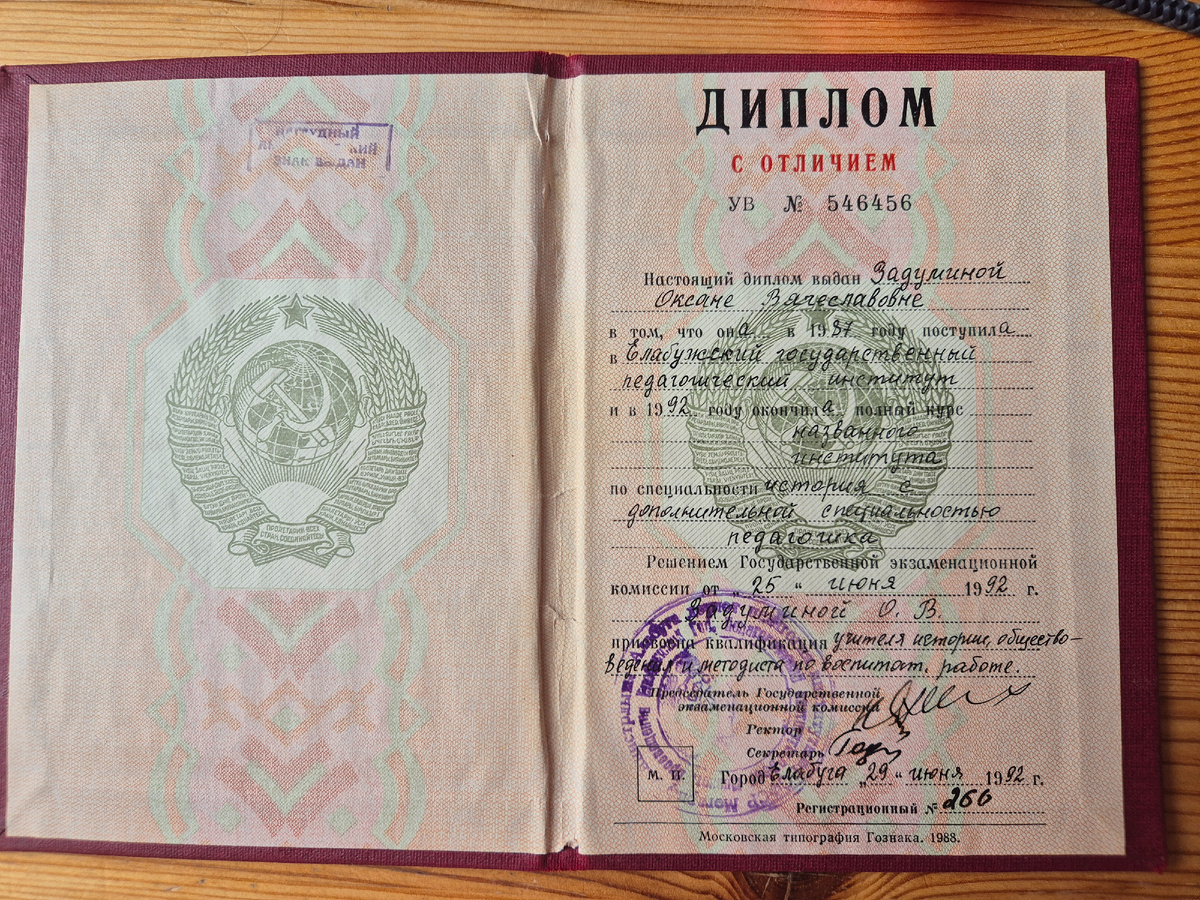 НАГРУДНЫЙ
ЗНАК ВЫДАН
ПРОЛЕТАРИИ ВСЕХ
СТРАН, СОЕДИНЯЙТЕСЬ!
ДИПЛОМ
С ОТЛИЧИЕМ
УВ № 546456
Настоящий диплом выдан Задуминой
Оксане Вячеславовне
в том, что она в 1987 году поступила
в Елабужский государственный
педагогический институт
и в 1992 году окончила полный курс
названного
института
по специальности история с
дополнительной специальностью
педагогика
Решением Государственной экзаменационной
комиссии от „25“ июня 1992 г.
Задуминой О. В.
присвоена квалификация учителя истории, общество-
ведения и методиста по воспитат. работе.
Председатель Государственной
экзаменационной комиссии
Ректор
Секретарь
М. П.
Город Елабуга „29“ июня 1992 г.
Регистрационный № 266
Московская типография Гознака. 1988.